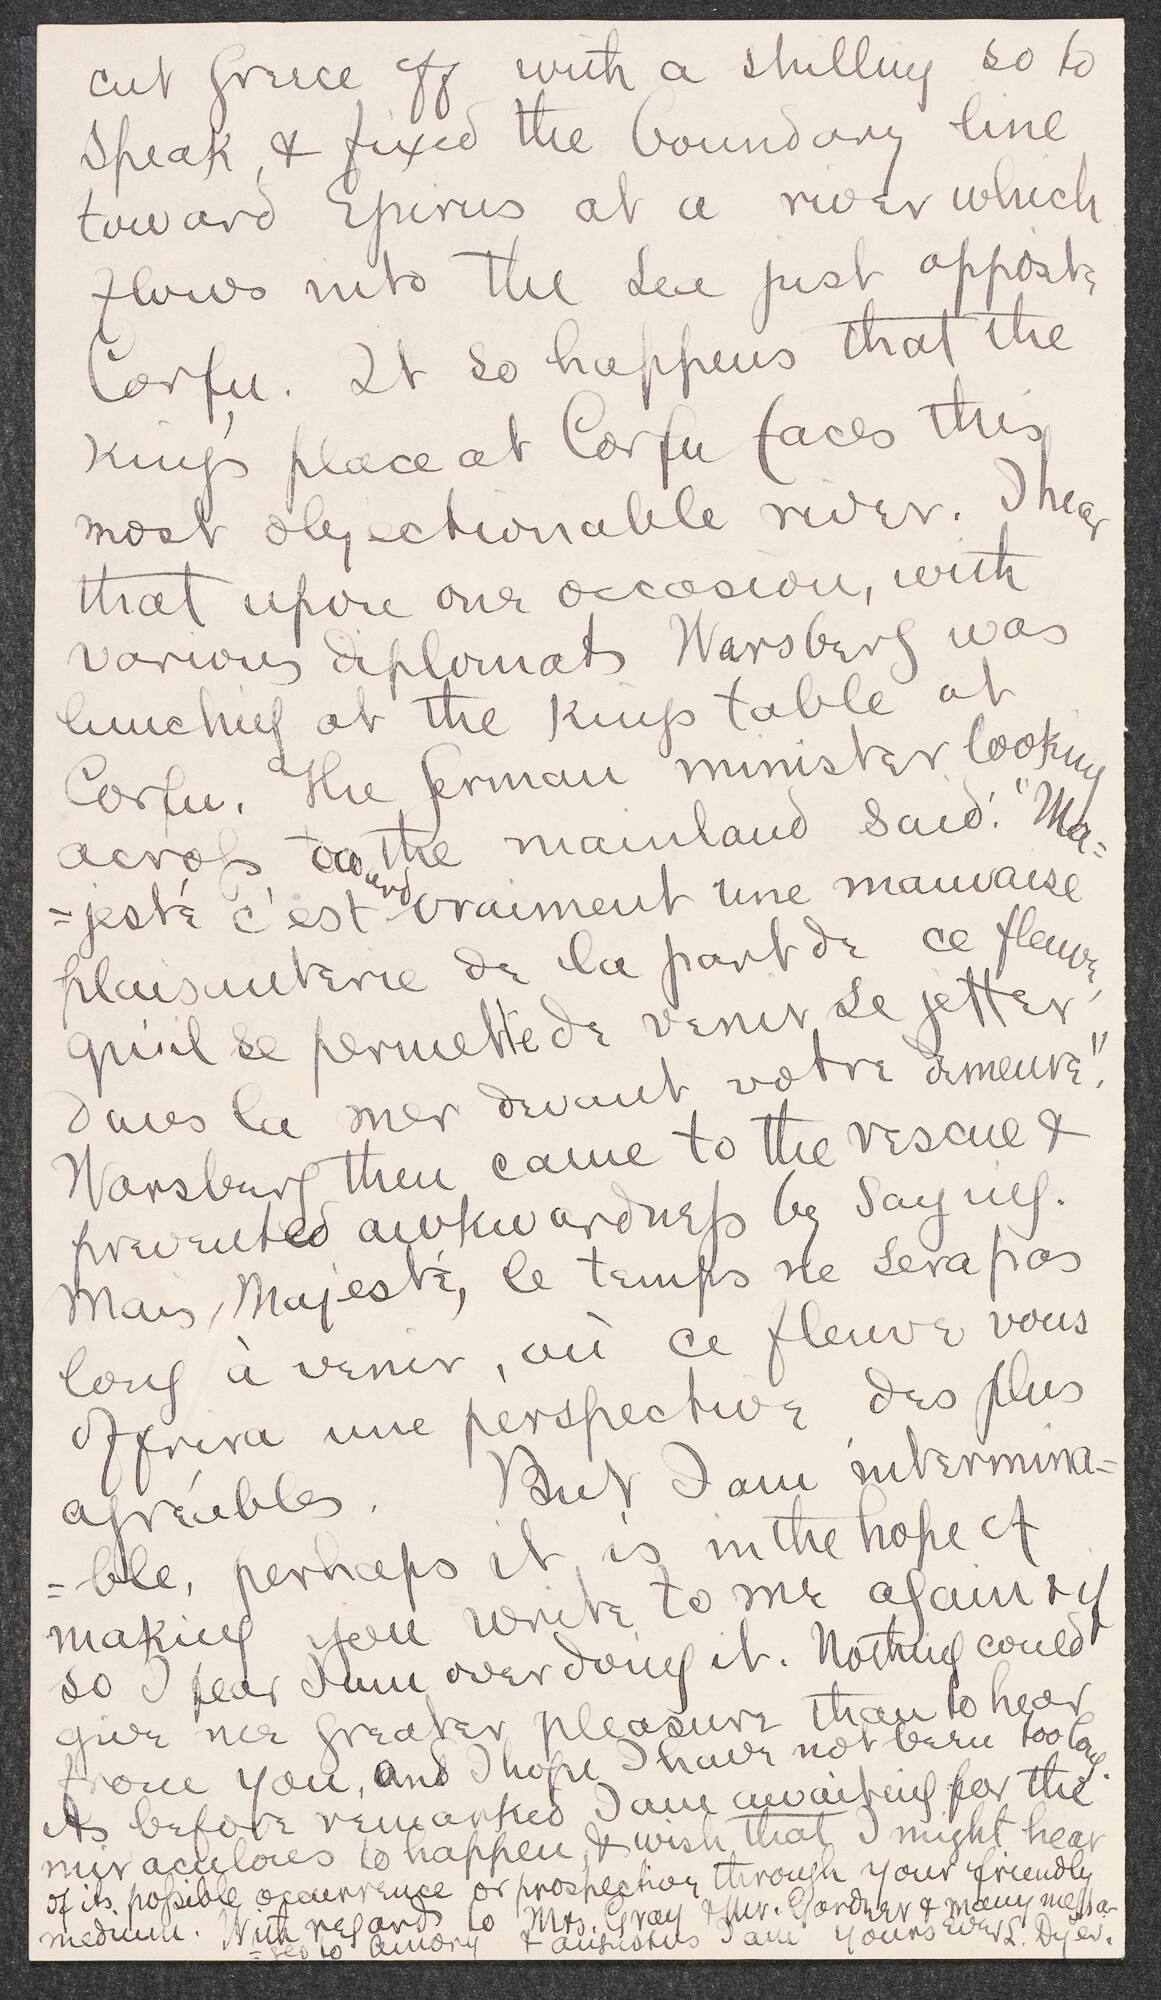 cut Greece off with a shilling so to
speak, & fixed the boundary line
toward Epirus at a river which
flows into the sea just opposite
Corfu. It so happens that the
King's place at Corfu faces this
most objectionable river. I hear
that upon one occasion, with
various diplomats Warsberg was
lunching at the Kings table at
Corfu. The German minister looking
across toward the mainland said: "Ma=
=jesté c'est vraiment une mauvaise
plaisanterie de la part de ce fleuve,
qu'il se permette de venir se jetter
dans la mer devant votre demeure".
Warsberg then came to the rescue &
prevented awkwardness by saying.
Mais, Majesté, le temps ne sera pas
long à venir, où ce fleuve vous
offrira une perspective des plus
agréables. But I am intermina=
=ble, perhaps it is in the hope of
making you write to me again & if
so I fear I am over doing it. Nothing could
give me greater pleasure than to hear
from you, and I hope I have not been too long.
As before remarked I am awaiting for the
miraculous to happen, & wish that I might hear
of its possible occurrence or prospective through your friendly
medium. With regards to Mrs. Gray & Mr. Gardner & many messa-
=ges to Amory & Augustus I am yours ever L. Dyer.